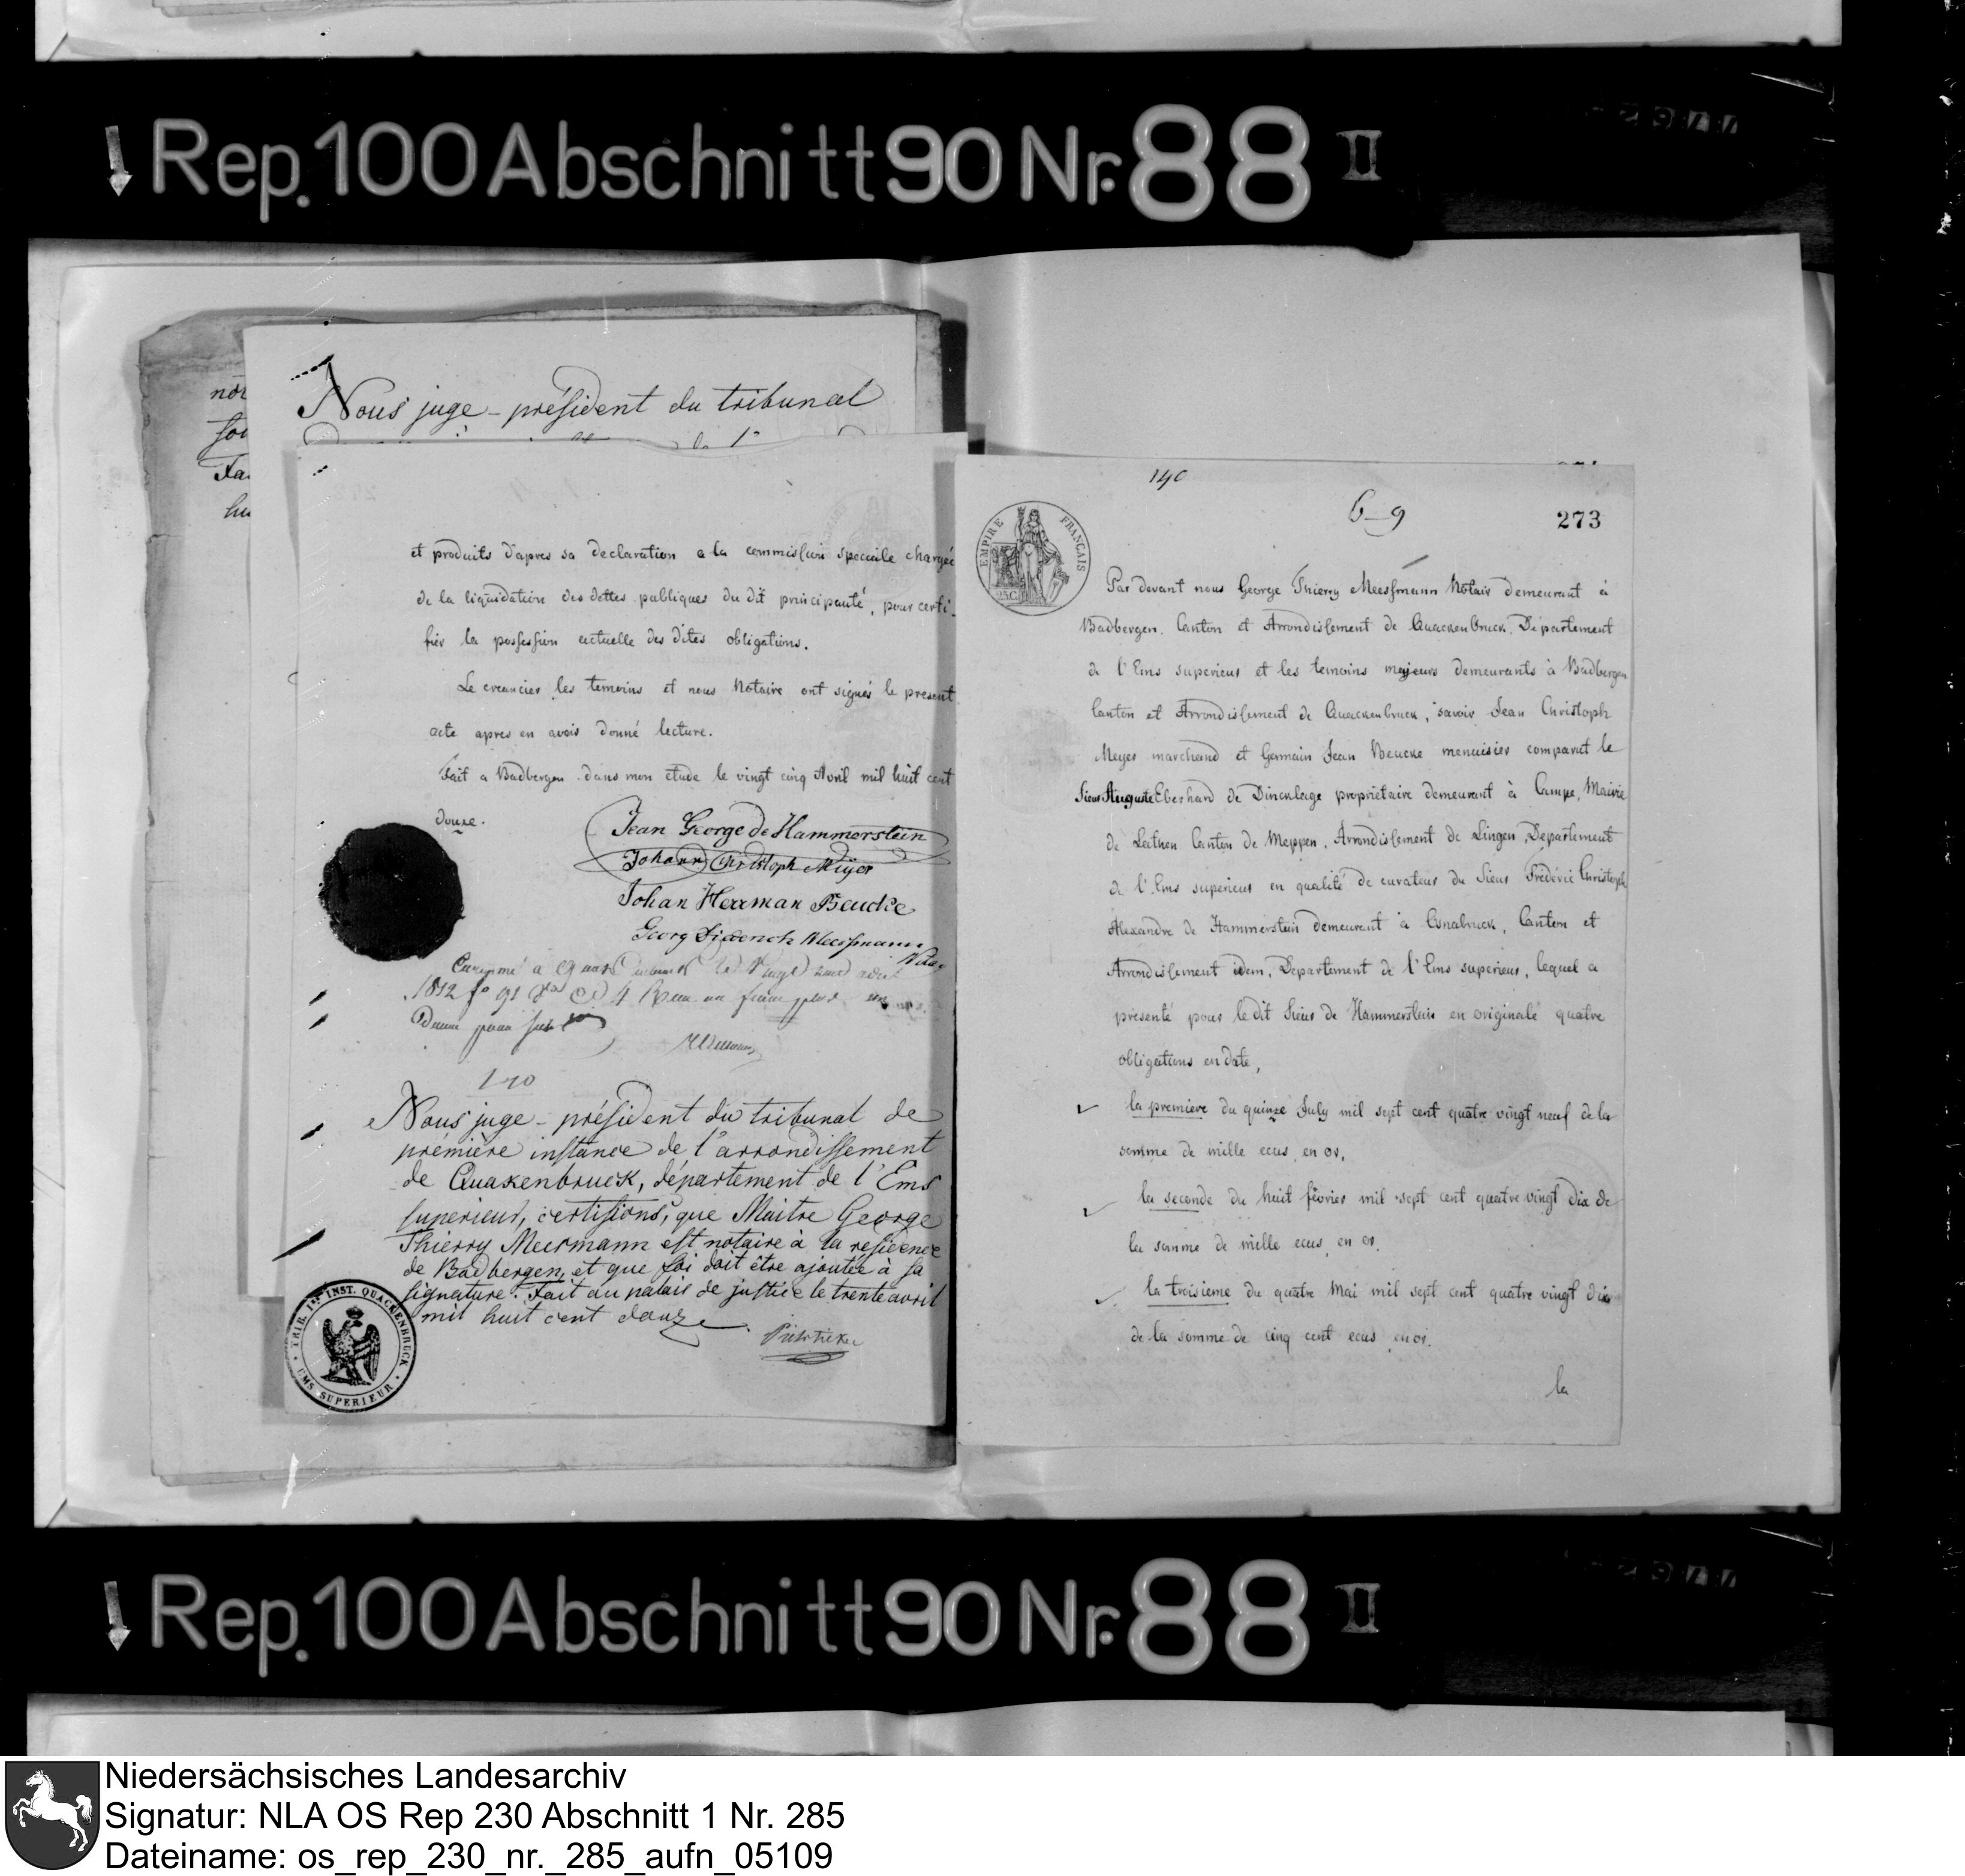 Rep. 100 Abschnitt 90 Nr. 88 II
nor
Nous juge-président du tribunal
et produits d'apres sa declaration a la commission speciale chargée
de la liquidation des dettes publiques du dit principauté, pour certi-
fier la possession actuelle des dites obligations.
Le creancier les temoins et nous Notaire ont signés le present
acte apres en avoir donné lecture.
Fait a Badbergen dans mon etude le vingt cinq Avril mil huit cent
douze.
Jean George de Hammerstein
Johann Christoph Meijer
Johan Herman Beucke
Georg Diderich Meessmann
1812 fo 91
140
Nous juge-président du tribunal de
première instance de l'arrondissement
de Quakenbruck, département de l'Ems
superieur, certifions, que Maitre George
Thierry Meesmann est notaire à la residence
de Badbergen, et que foi doit être ajoutée à sa
signature. Fait au palais de justice le trente avril
mil huit cent douze
TRIB. 1er INST. QUACKENBRUCK
EMS SUPERIEUR
140
6-9
273
EMPIRE FRANÇAIS
25 C.
Par devant nous George Thierry Meessmann Notair demeurant à
Badbergen, Canton et Arrondissement de Quackenbruck, Département
de l'Ems superieur et les temoins majeurs demeurants à Badbergen
Canton et Arrondissement de Quackenbruck, savoir Jean Christoph
Meyer marchand et Germain Jean Beucke menuisier comparut le
Sieur Auguste Eberhard de Dincklage proprietaire demeurant à Campe, Mairie
de Lathen Canton de Meppen, Arrondissement de Lingen, Departement
de l'Ems superieur en qualité de curateur du Sieur Fréderic Christoph
Alexandre de Hammerstein demeurant à Osnabruck, Canton et
Arrondissement idem, Departement de l'Ems superieur, lequel a
presenté pour le dit Sieur de Hammerstein en originale quatre
obligations en date,
la premiere du quinze July mil sept cent quatre vingt neuf de la
somme de mille ecus en or,
la seconde du huit fevrier mil sept cent quatre vingt dix de
la somme de mille ecus en or,
la troisieme du quatre Mai mil sept cent quatre vingt dix
de la somme de cinq cent ecus en or.
la
Rep. 100 Abschnitt 90 Nr. 88 II
Niedersächsisches Landesarchiv
Signatur: NLA OS Rep 230 Abschnitt 1 Nr. 285
Dateiname: os_rep_230_nr._285_aufn_05109